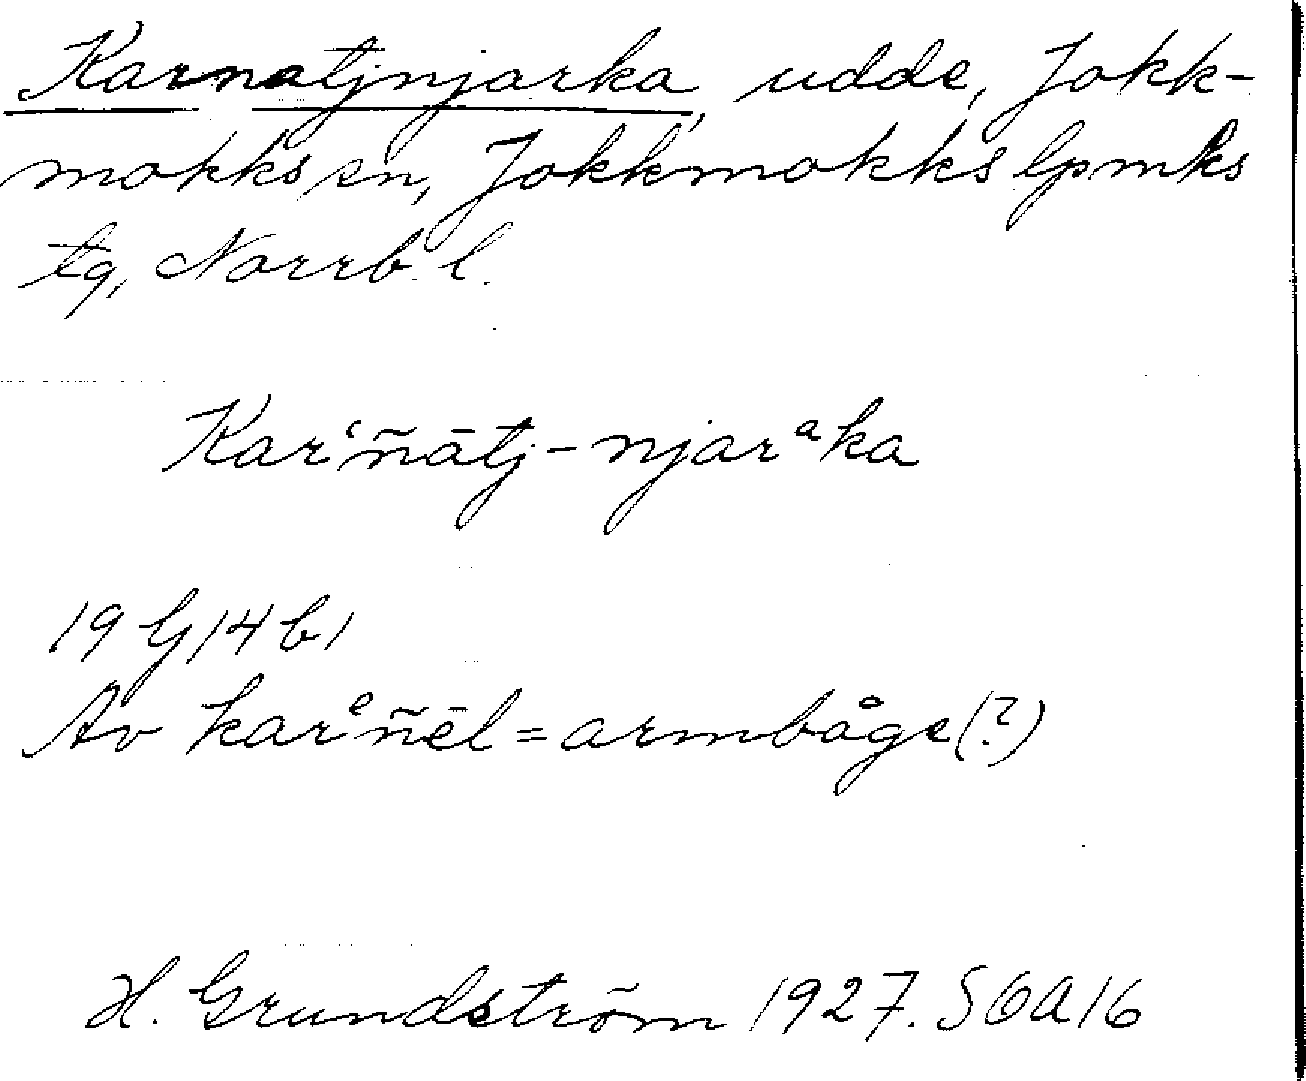 Karnatjnjarka, udde, Jokk-
mokks sn, Jokkmokks lpmks
tg, Norrb. l.
Karʿñātj-njarᵃka
19 G 14 b 1
Av karᵉñēl = armbåge (?)
H. Grundström 1927. SOA 16